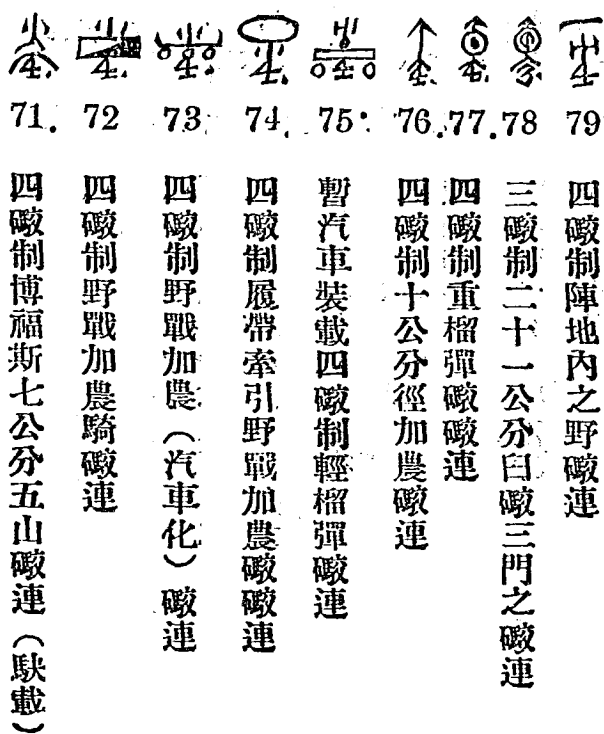 71. 四礮制博福斯七公分五山礮連（馱載）
72 四礮制野戰加農騎礮連
73. 四礮制野戰加農（汽車化）礮連
74. 四礮制履帶牽引野戰加農礮礮連
75. 暫汽車裝載四礮制輕榴彈礮連
76. 四礮制十公分徑加農礮連
77. 四礮制重榴彈礮礮連
78 三礮制二十一公分臼礮三門之礮連
79 四礮制陣地內之野礮連